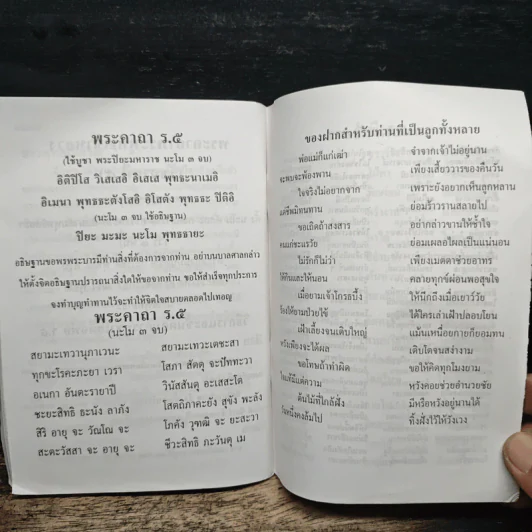 พระคาถา ร.๕
(ใช้บูชา พระปิยะมหาราช นะโม ๓ จบ)
อิติปิโส วิเสเสอิ อิเสเส พุทธะนาเมอิ
อิเมนา พุทธะตังโสอิ อิโสตัง พุทธะะ ปิติอิ
(นะโม ๓ จบ ใช้อธิษฐาน)
ปิยะ มะมะ นะโม พุทธายะ
อธิษฐานขอพรพระบารมีท่านสิ่งที่ต้องการจากท่าน อย่าบนบาลศาลกล่าว
ให้ตั้งจิตอธิษฐานปรารถนาสิ่งใดให้ขอจากท่าน ขอให้สำเร็จทุกประการ
จงทำบุญทำทานไว้จะทำให้จิตใจสบายตลอดไปเทอญ
พระคาถา ร.๕
(นะโม ๓ จบ)
สยามะเทวานุภาเวนะ สยามะเทวะเตชะสา
ทุกขะโรคะภะยา เวรา โสภา สัตตุ จะปัททะวา
อเนกา อันตะรายาปิ วินัสสันตุ อะเสสะโต
ชะยะสิทธิ ธะนัง ลาภัง โสตถิภาคะยัง สุขัง พะลัง
สิริ อายุ จะ วัณโณ จะ โภคัง วุฑฒิ จะ ยะสะวา
สะตะวัสสา จะ อายุ จะ ชีวะสิทธิ ภะวันตุ เม
ของฝากสำหรับท่านที่เป็นลูกทั้งหลาย
พ่อแม่ก็แก่เฒ่า จำจากเจ้าไม่อยู่นาน
จะพบจะพ้องพาน เพียงเสี้ยววารของคืนวัน
ใจจริงไม่อยากจาก เพราะยังอยากเห็นลูกหลาน
แต่ชีพมิทนทาน ย่อมร้าวรานสลายไป
ขอเถิดถ้าสงสาร อย่ากล่าวขานให้ช้ำใจ
คนแก่ชะแรวัย ย่อมเผลอไผลเป็นแน่นอน
ไม่รักก็ไม่ว่า เพียงเมตตาช่วยอาทร
ให้กินและให้นอน คลายทุกข์ผ่อนพอสุขใจ
เมื่อยามเจ้าโกรธขึ้ง ให้นึกถึงเมื่อเยาว์วัย
ร้องไห้ยามป่วยไข้ ได้ใครเล่าเฝ้าปลอบโยน
เฝ้าเลี้ยงจนเติบใหญ่ แม้นเหนื่อยกายก็ยอมทน
หวังเพียงจะได้ผล เติบโตจนสง่างาม
ขอโทษถ้าทำผิด ขอให้คิดทุกโมงยาม
ใจแท้มีแต่ความ หวังคอยช่วยอำนวยชัย
ต้นไม้ที่ใกล้ฝั่ง มีหรือหวังอยู่นานได้
วันหนึ่งคงล้มไป ทิ้งฝั่งไว้ให้วังเวง